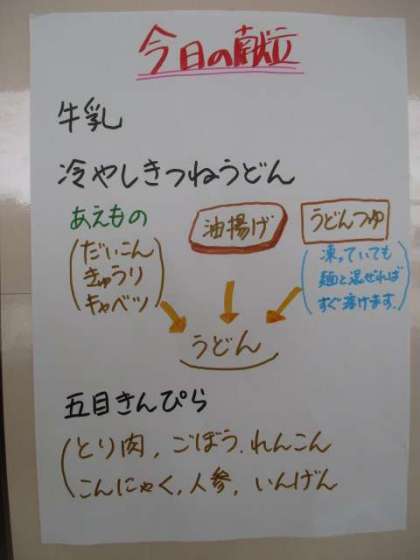 今日の献立
牛乳
冷やしきつねうどん
あえもの
(だいこん
きゅうり
キャベツ)
油揚げ
うどんつゆ
(凍っていても
麺と混ぜれば
すぐ溶けます。)
うどん
五目きんぴら
(とり肉, ごぼう, れんこん
こんにゃく, 人参, いんげん